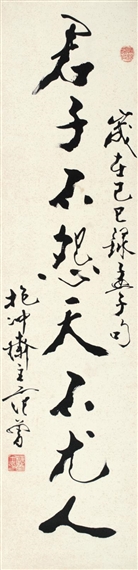 君子不怨天不尤人
歲在己巳録孟子句
抱冲齋主范曾